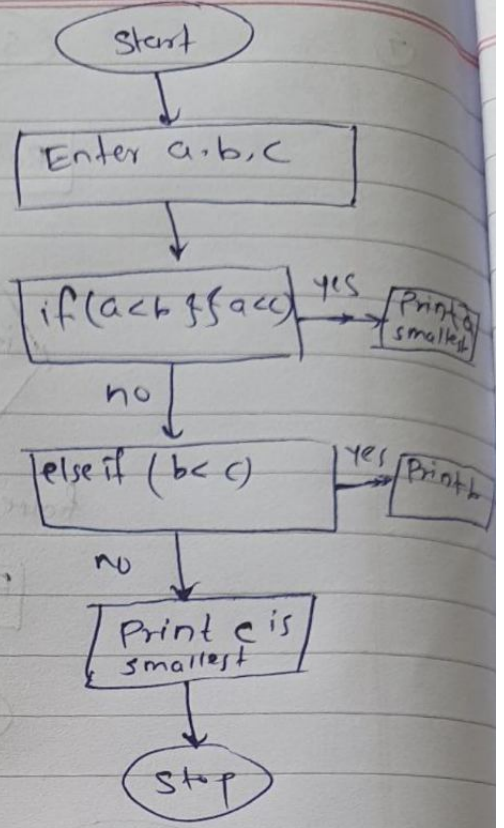 Start
Enter a, b, c
if (a<b && a<c)
yes
Print a
smallest
no
else if (b< c)
yes
Print b
no
Print c is
smallest
Stop